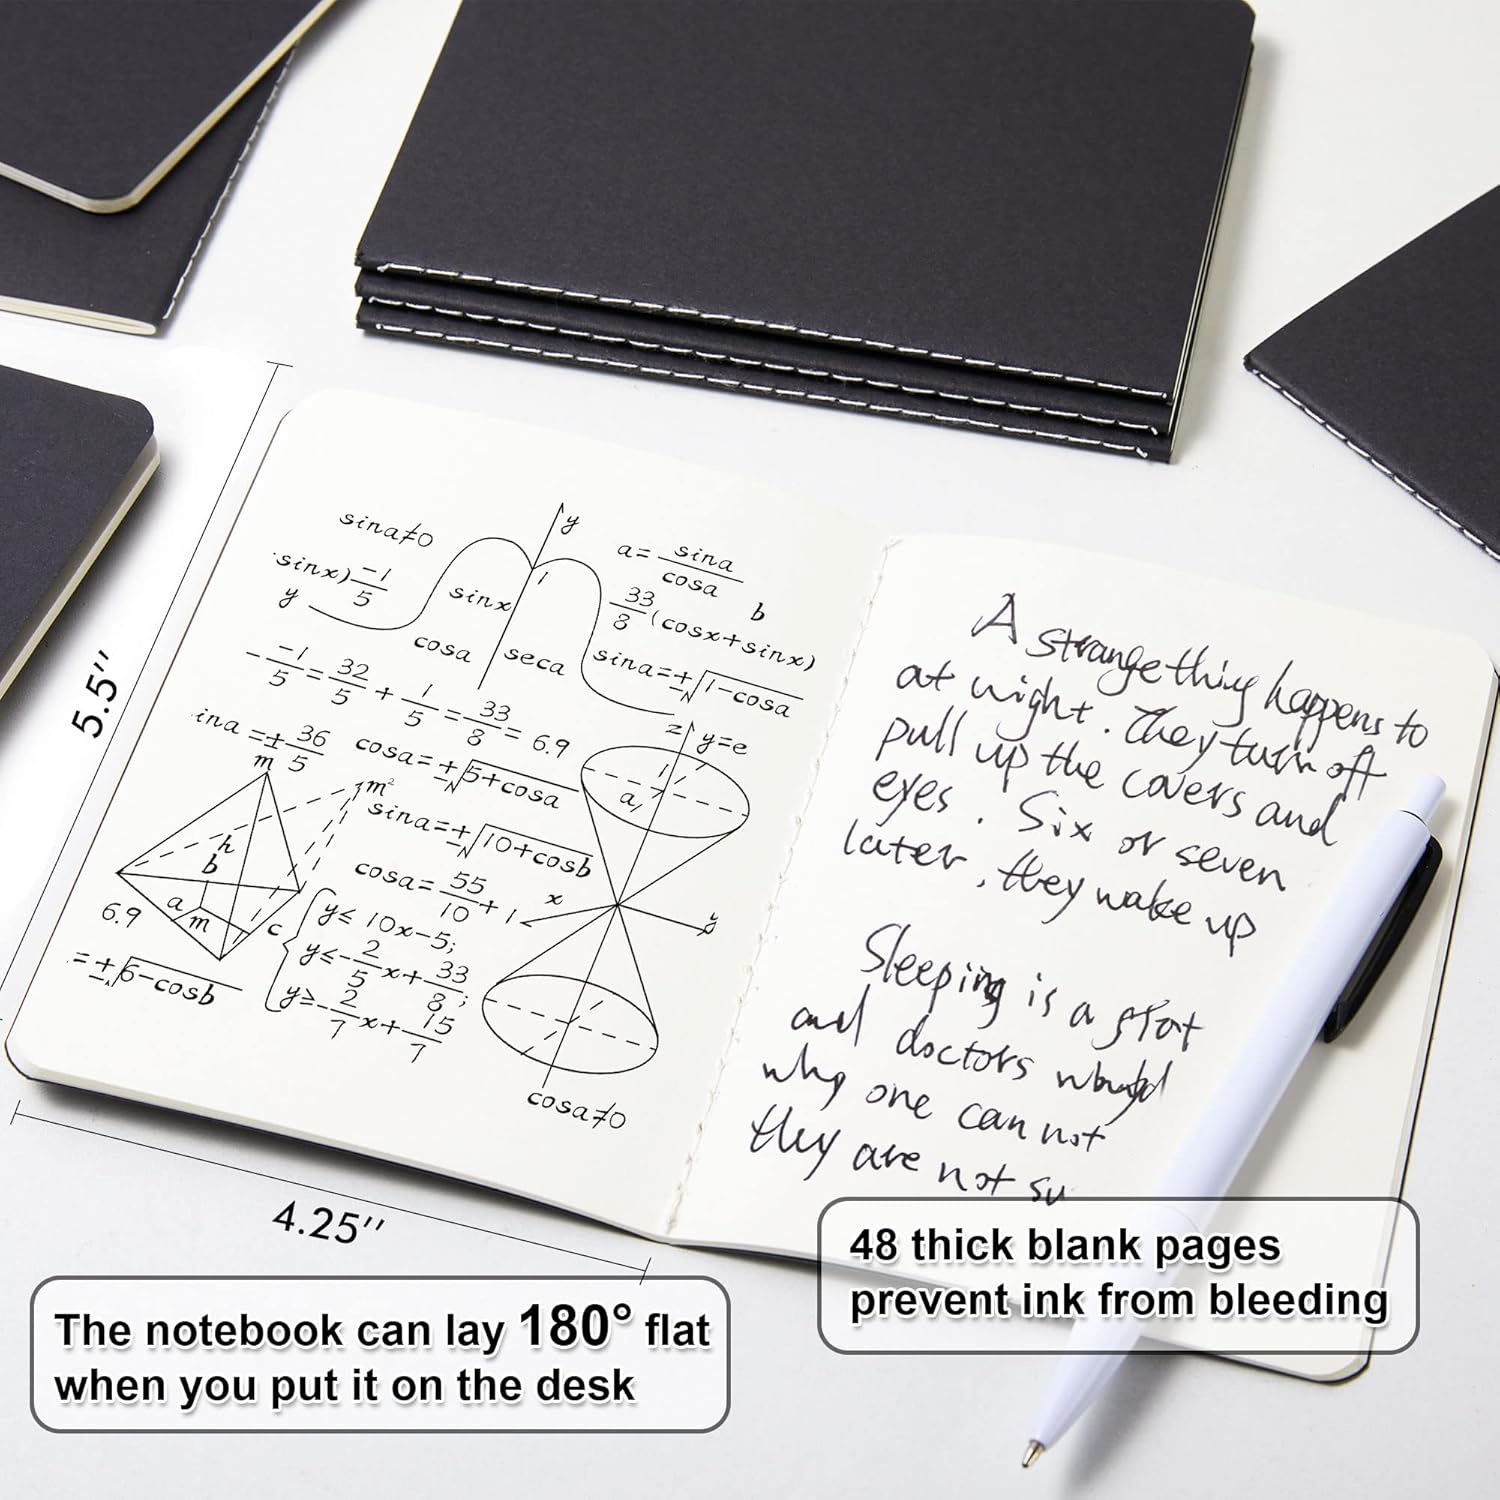 sina≠0
y
a= sina/cosa
sinx) -1/5
y
sinx
1
33/8 (cosx+sinx)
b
cosa
seca
sina=±√1-cosa
- -1/5 = 32/5 + 1/5 = 33/8 = 6.9
z
y=e
ina=± 36/5
cosa=±√5+cosa
1
a
m
m²
sina=±√10+cosb
h
b
cosa= 55/10 +1
x
y
a
m
c
6.9
y≤ 10x-5;
y≤- 2/5 x+ 33/8;
y≥- 2/7 x+ 15/7
=±√6-cosb
cosa≠0
A strange thing happens to
at night. They turn off
pull up the covers and
eyes. Six or seven
later, they wake up
Sleeping is a
and doctors
why one can not
they are not su
5.5''
4.25''
The notebook can lay 180° flat
when you put it on the desk
48 thick blank pages
prevent ink from bleeding